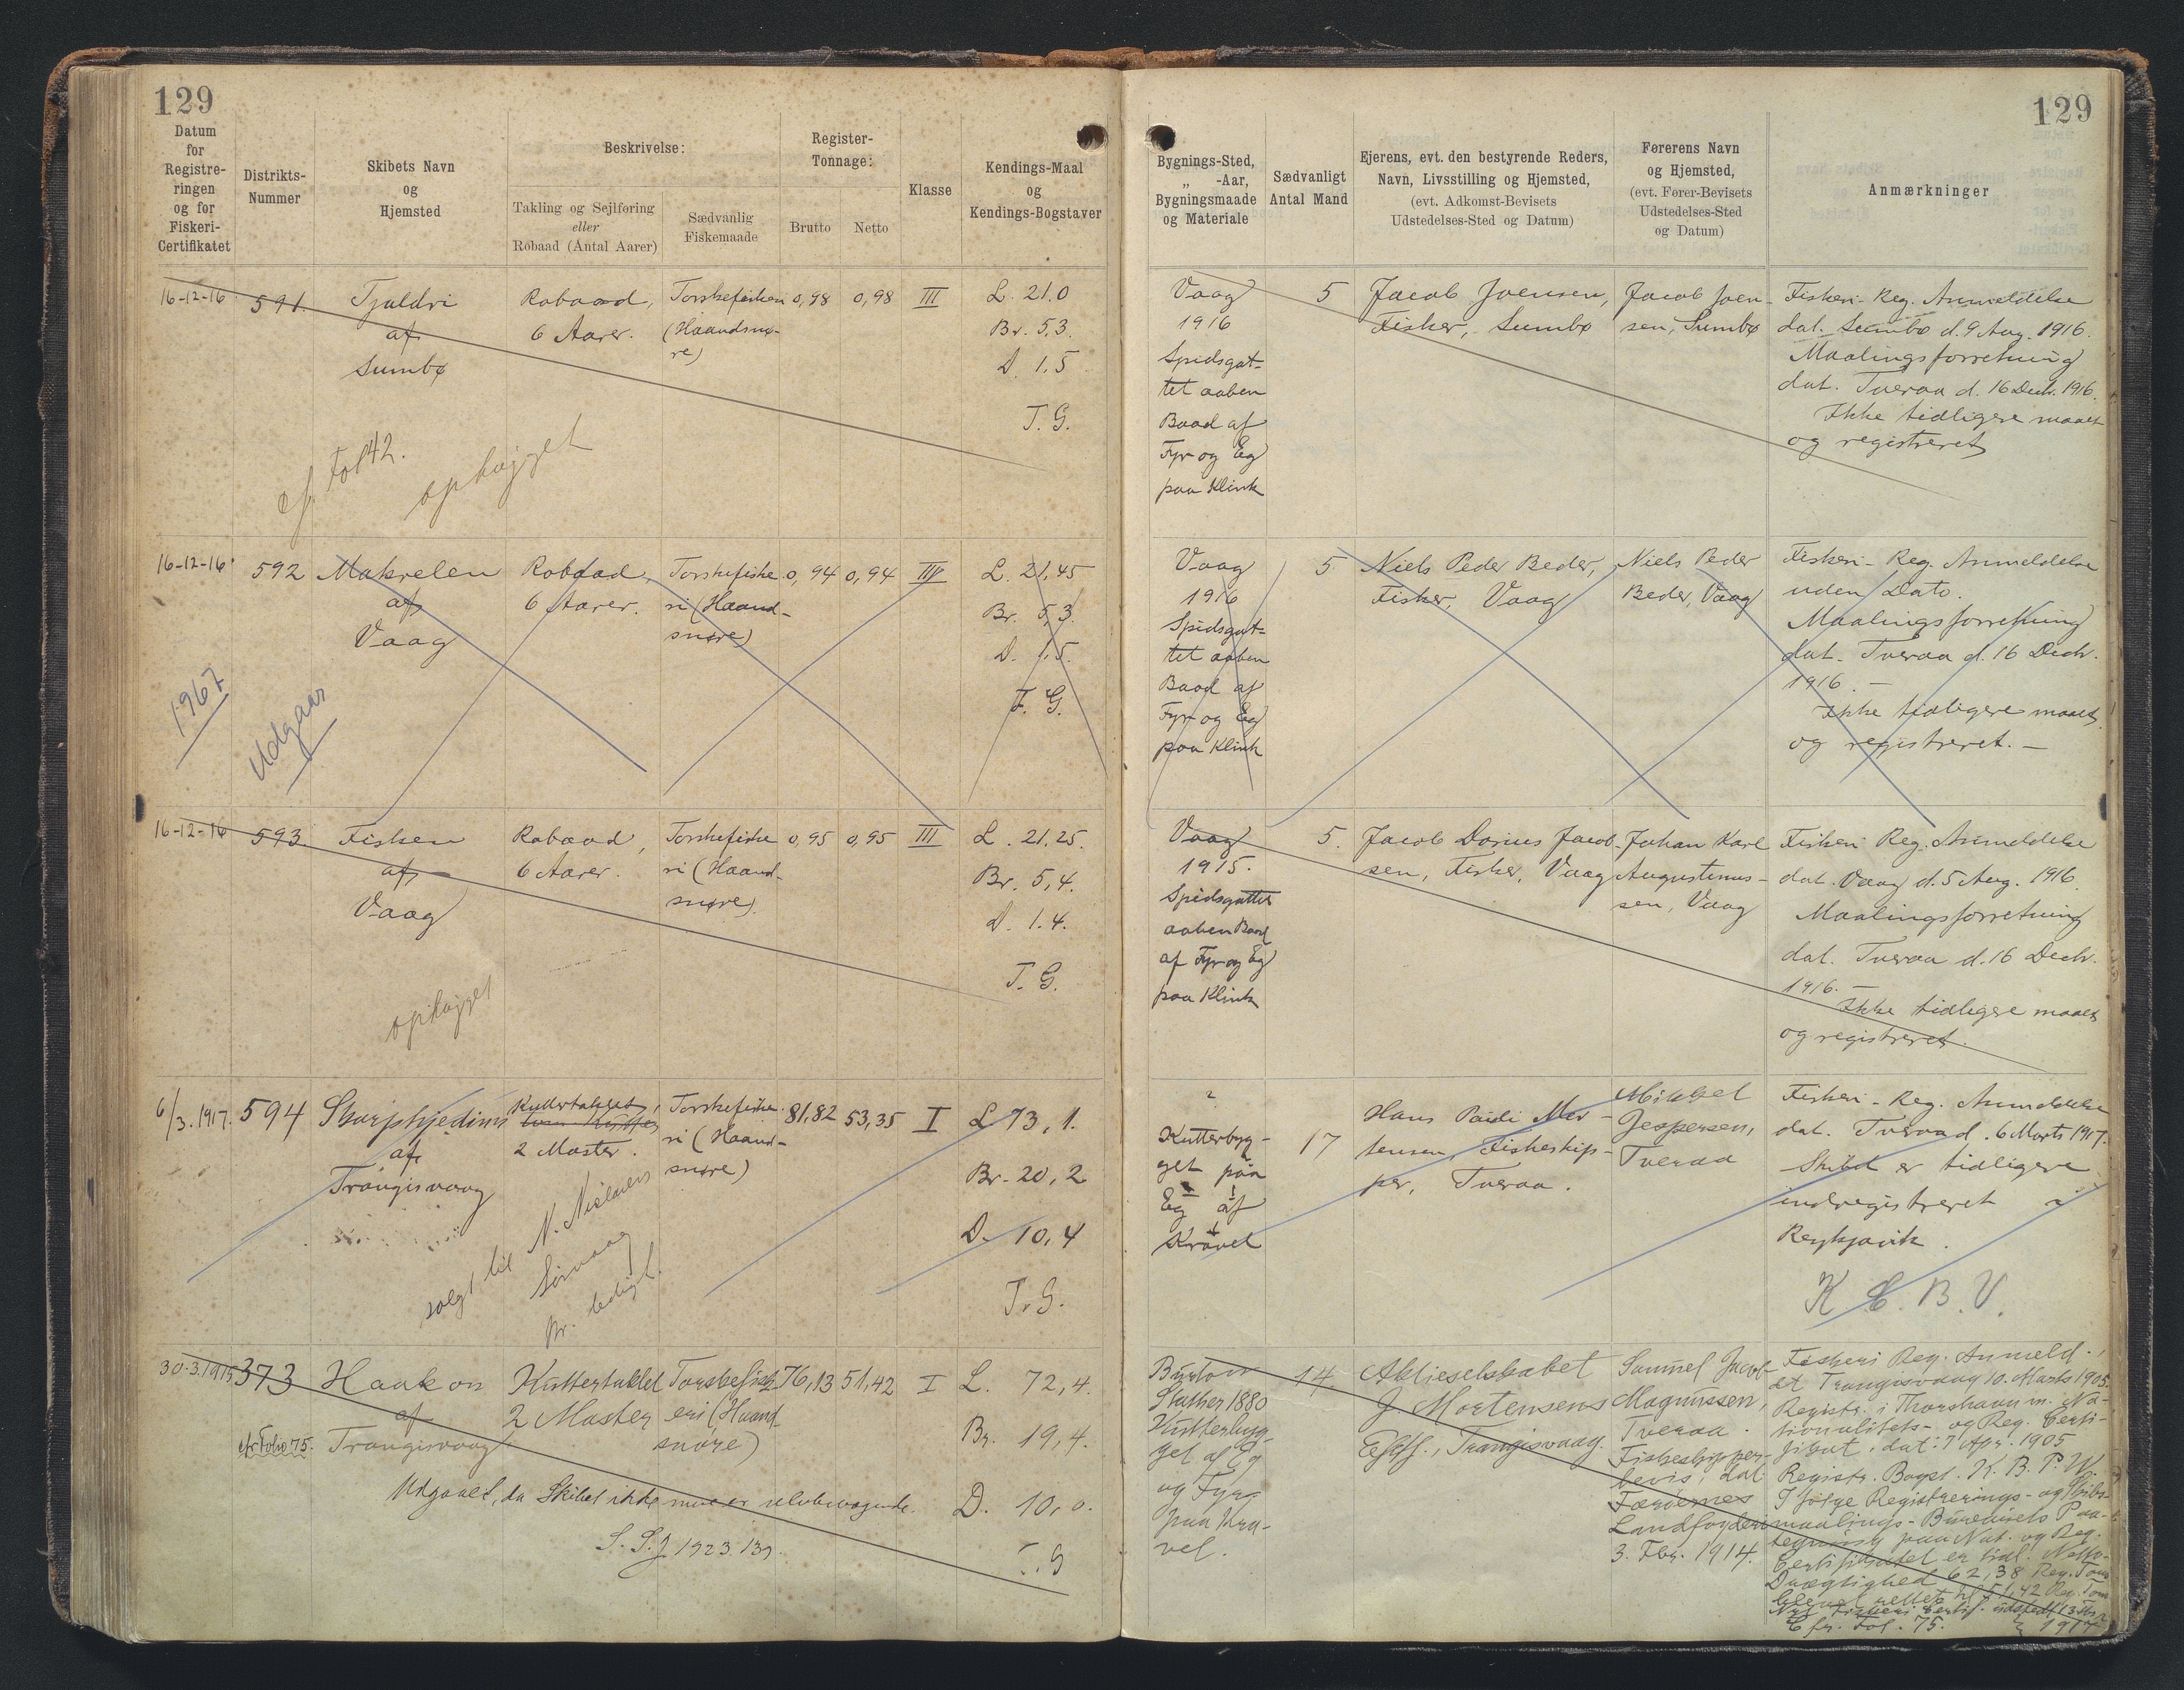 129
Datum
for
Registre-
ringen
og for
Fiskeri-
Certifikatet
Distrikts-
Nummer
Skibets Navn
og
Hjemsted
Beskrivelse:
Takling og Sejlføring
eller
Robaad (Antal Aarer)
Sædvanlig
Fiskemaade
Register-
Tonnage:
Brutto
Netto
Klasse
Kendings-Maal
og
Kendings-Bogstaver
16-12-16
591.
Tjaldri
af
Sumbø
Robaad,
6 Aarer.
Torskefiskeri
(Haandsnø-
re)
0,98
0,98
III
L. 21.0
Br. 5,3.
D. 1,5
T. G.
cf. Fol 42.
ophøjget
16-12-16
592
Makrelen
af
Vaag
Robaad,
6 Aarer.
Torskefiske
ri (Haand-
snøre)
0,94
0,94
III
L. 21,45
Br. 5,3.
D. 1,5.
T. G.
1967
Udgaar
16-12-16
593.
Fisken
af
Vaag
Robaad,
6 Aarer.
Torskefiske
ri (Haand-
snøre).
0,95
0,95
III
L. 21,25.
Br. 5,4.
D. 1.4.
T. G.
ophøjget
6/3.1917.
594
Skarphjedinn
af
Trangisvaag
Kuttertaklet,
2 Master.
Torskefiske-
ri (Haand-
snøre)
81,82
53,35
I
L 73,1.
Br. 20,2
D. 10,4
T. G.
solgt til N. Nielsen
Sørvaag
30.3.1915
373
cfr Folio 75.
Haakon
af
Trangisvaag
Kuttertaklet
2 Master
Torskefisk-
eri (Haand
snøre)
76,13
51,42
I
L. 72,4.
Br. 19,4.
D. 10,0.
T. G
Udgaaet, da Skibet ikke mere er selvbevægende.
S. S. J. 1923. 139.
129
Bygnings-Sted,
„ -Aar,
Bygningsmaade
og Materiale
Sædvanligt
Antal Mand
Ejerens, evt. den bestyrende Reders,
Navn, Livsstilling og Hjemsted,
(evt. Adkomst-Bevisets
Udstedelses-Sted og Datum)
Førerens Navn
og Hjemsted,
(evt. Fører-Bevisets
Udstedelses-Sted
og Datum)
Anmærkninger
Vaag
1916
Spidsgat-
tet aaben
Baad af
Fyr og Eg
paa Klink
5
Jacob Joensen,
Fisker, Sumbø
Jacob Joen-
sen, Sumbø
Fiskeri-Reg. Anmeldelse
dat. Sumbø d. 9 Aug. 1916.
Maalingsforretning
dat. Tveraa d. 16 Decbr. 1916.
Ikke tidligere maalt
og registreret
Vaag
1916
Spidsgat-
tet aaben
Baad af
Fyr og Eg
paa Klink
5
Niels Peder Beder,
Fisker, Vaag
Niels Peder
Beder, Vaag
Fiskeri-Reg. Anmeldelse
uden Dato.
Maalingsforretning
dat. Tveraa d. 16 Decbr.
1916. —
Ikke tidligere maalt
og registreret. —
Vaag
1915.
Spidsgattet
aaben Baad
af Fyr og Eg
paa Klink
5.
Jacob Dorius Jacob-
sen, Fisker, Vaag
Johan Karl
Augustinus-
sen, Vaag
Fiskeri Reg. Anmeldelse
dat. Vaag d. 5 Aug. 1916.
Maalingsforretning
dat. Tveraa d. 16 Decbr.
1916. —
Ikke tidligere maalt
og registreret.
?
Kutterbyg-
get paa
Eg af
Kravel
17
Hans Paidi Mor-
tensen, Fiskeskip-
per, Tveraa.
Mikkel
Jespersen,
Tveraa
Fiskeri-Reg. Anmeldelse
dat. Tveraa d. 6 Marts 1917.
Skibet er tidligere
indregistreret i
Reykjavik.
Burton
Stather 1880
Kutterbyg-
get af Eg
og Fyr
paa Kra-
vel.
14.
Aktieselskabet
J. Mortensens
Eftff., Trangisvaag.
Samuel Jacob
Magnussen,
Tveraa.
Fiskeskipper-
bevis, dat
Færøernes
Landfogderi
3. Fbr. 1914.
Fiskeri Reg. Anmeld.,
dt Trangisvaag 10. Marts 1905.
Registr. i Thorshavn m. Na-
tionalitets- og Reg. Certi-
fikat, dat: 7 Apr. 1905
Registr. Bogst. K. B. P. W
I følge Registrerings- og Skibs-
maalings-Bureauets Paa-
tegning paa Nat. og Reg.
Certifikatet er tidl. Netto-
Drægtighed 62,38 Reg. Tons
blevet rettet til 51,42 Reg. Tons
Cfr. Fol. 75.